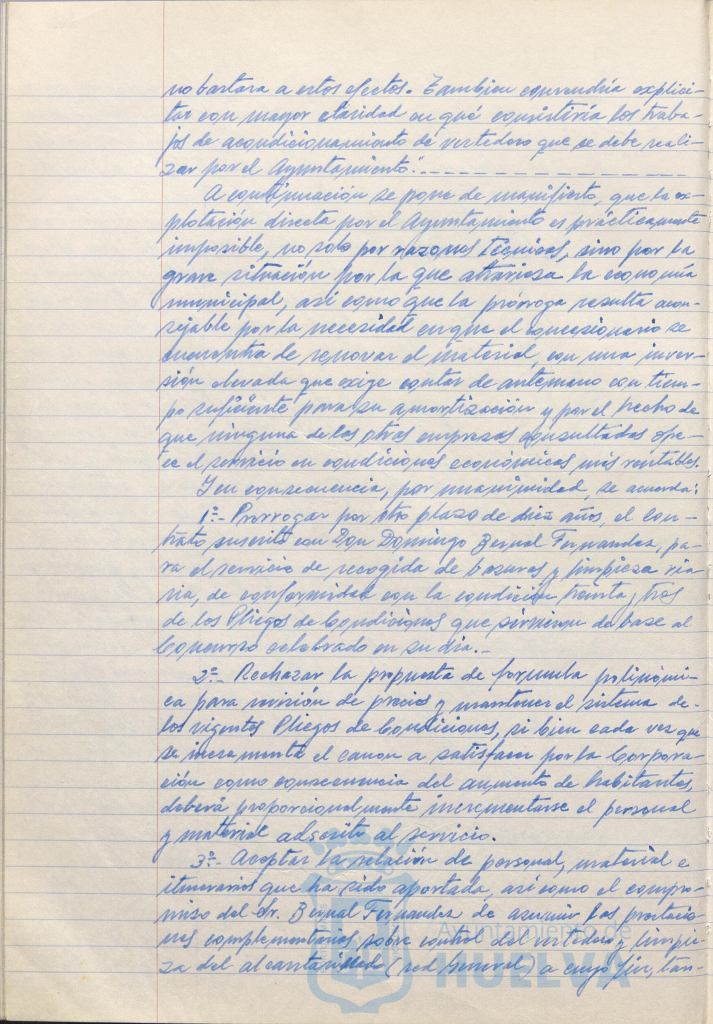 no bastara a estos efectos. Tambien convendría explici-
tar con mayor claridad en qué consistiría los traba-
jos de acondicionamiento de vertedero que se debe reali-
zar por el Ayuntamiento". - - - - - - - - - - - - - -
A continuación se pone de manifiesto, que la ex-
plotación directa por el Ayuntamiento es prácticamente
imposible, no solo por razones técnicas, sino por la
grave situación por la que atraviesa la economía
municipal, así como que la prórroga resulta acon-
sejable por la necesidad en que el concesionario se
encuentra de renovar el material, con una inver-
sión elevada que exige contar de antemano con tiem-
po suficiente para su amortización y por el hecho de
que ninguna de las otras empresas consultadas ofre-
ce el servicio en condiciones económicas más rentables.
Y en consecuencia, por unanimidad, se acuerda:
1º.- Prorrogar por otro plazo de diez años, el con-
trato suscrito con Don Domingo Bernal Fernandez, pa-
ra el servicio de recogida de basuras y limpieza via-
ria, de conformidad con la condición treinta y tres
de los Pliegos de Condiciones que sirvieron de base al
Concurso celebrado en su dia.-
2º.- Rechazar la propuesta de formula polinómi-
ca para revisión de precios y mantener el sistema de
los vigentes Pliegos de Condiciones, si bien cada vez que
se incremente el canon a satisfacer por la Corpora-
ción como consecuencia del aumento de habitantes,
deberá proporcionalmente incrementarse el personal
y material adscrito al servicio.
3º.- Aceptar la relación de personal, material e
itinerarios que ha sido aportada, así como el compro-
miso del Sr. Bernal Fernandez de asumir las prestacio-
nes complementarias sobre control del vertedero y limpie-
za del alcantarillado (red general) a cuyo fin, tan-
Ayuntamiento de
HUELVA